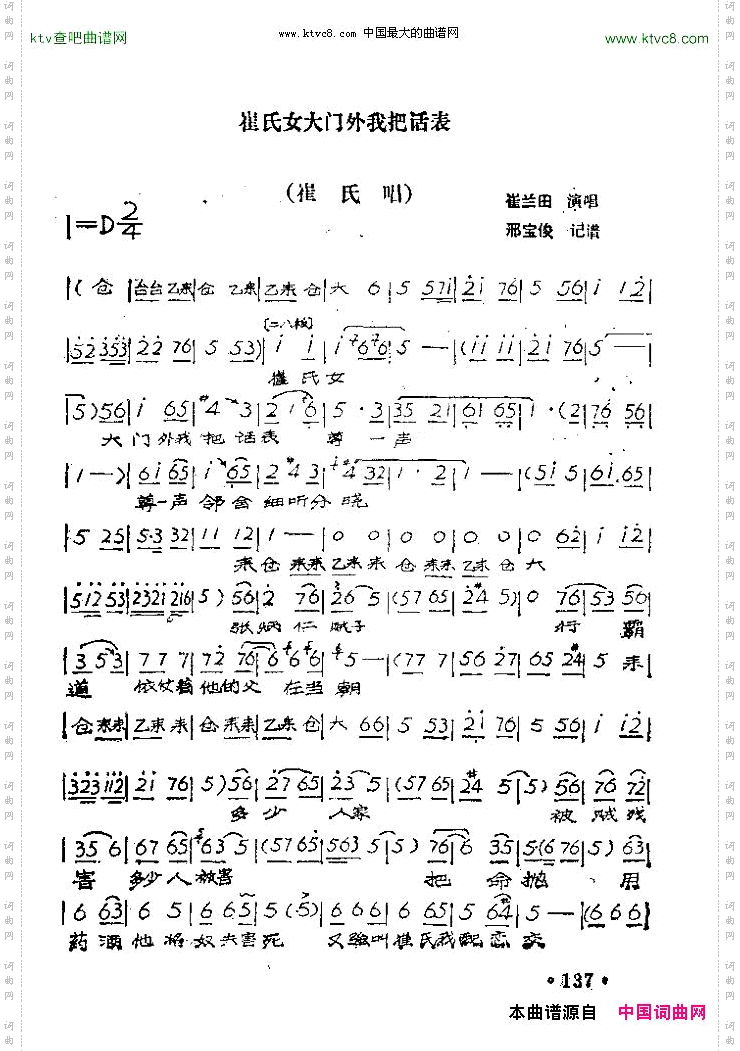 ktv查吧曲谱网
www.ktvc8.com 中国最大的曲谱网
www.ktvc8.com
崔氏女大门外我把话表
(崔 氏 唱)
崔兰田 演唱
1=D 2/4
邢宝俊 记谱
(仓 | 台台 乙来 | 仓 乙来 | 乙来 仓 | 大 6 | 5 57i | 2i 76 | 5 56 | i 12 |
[二八板]
52 353 | 22 76 | 5 53) | i i | i 7676 | 5 — | (ii ii | 2i 76 | 5 —
崔 氏 女
5) 56 | i 65 | #4 3 | 2 i 6 | 5 · 3 | 35 21 | 61 65 | 1 · (2 | 76 56 |
大 门 外 我 把 话 表 尊 一 声
1 —) | 6i 65 | i 65 | 2 #4 3 | #4 32 | 1 · 2 | 1 — | (5i 5 | 6i 65 |
尊一声 邻舍 细听分晓
5 25 | 5·3 32 | 11 12 | 1 — | 0 0 | 0 0 | 0 0 | 0 62 | i i2 |
来 仓 来来 乙来 来 仓 来来 乙来 仓 大
512 53 | 2321 216 | 5) 56 | 2 76 | 26 5 | (57 65 | 24 5) | 0 76 | 53 56 |
张炳仁 贼子 行 霸
3 53 | 77 7 | 72 76 | 6 66 | 5 — | (77 7 | 56 27 | 65 24 | 5 来 |
道 依仗着 他的父 在当朝
仓 来来 | 乙来 来 | 仓 来来 | 乙来 仓 | 大 66 | 5 53 | 2i 76 | 5 i | i i2 |
323 112 | 2i 76 | 5) 56 | 27 65 | 23 5 | (57 65 | 24 5 | 5) 56 | 76 72 |
多少 人家 被 贼 残
35 6 | 67 65 | 63 5 | (57 65 | 563 5 | 5) 76 | 6 35 | 5(6 76 | 5) 63 |
害 多少人 被害 把 命 抛 用
6 63 | 6 5 | 66 5 | 5 (5) | 66 6 | 6 65 | 5 64 | 5 — | (6 66 |
药酒 他将 奴夫害死 又强叫崔氏我配恋交
·137·
本曲谱源自 中国词曲网
词曲网